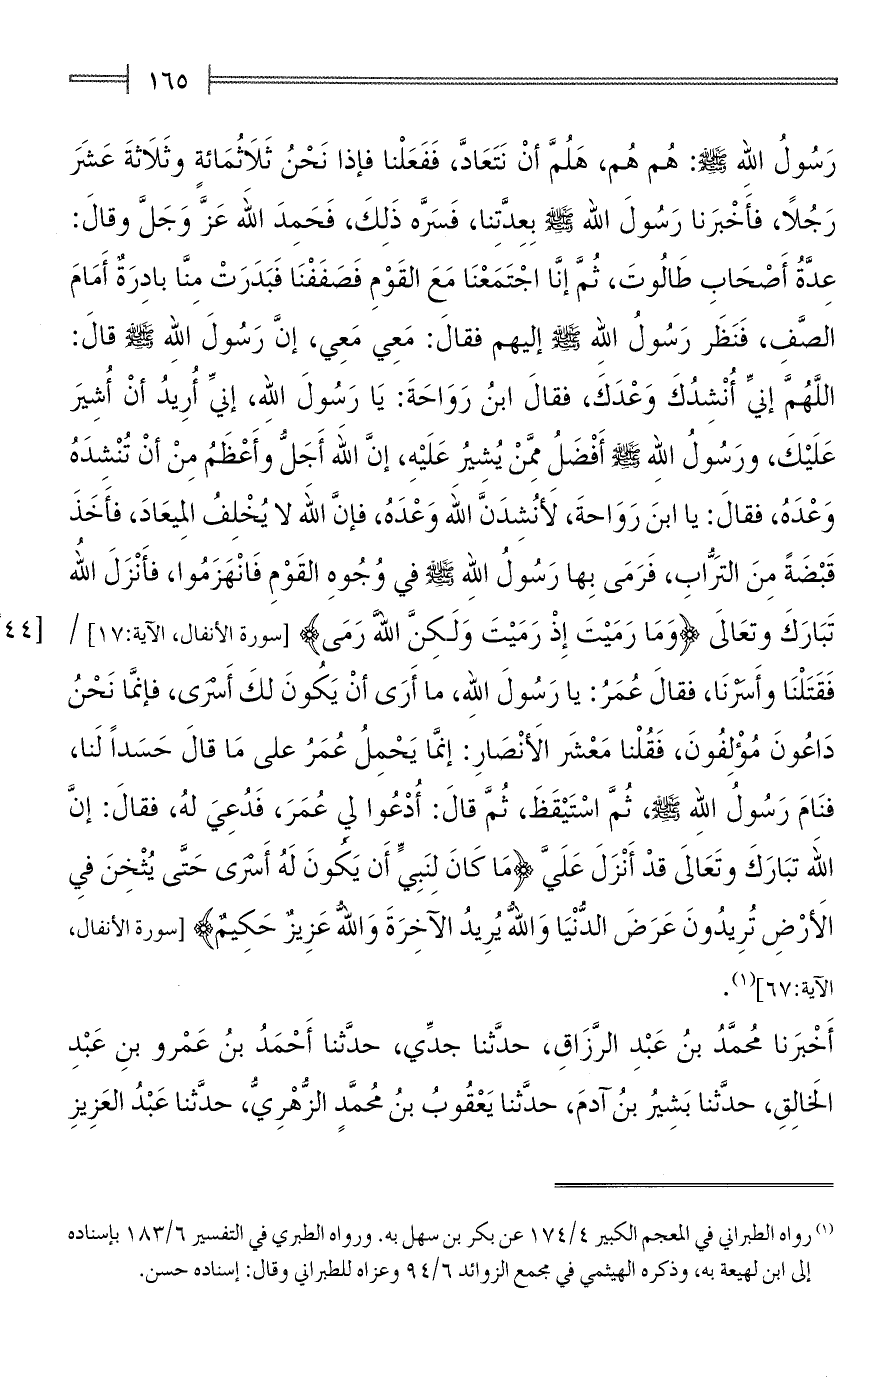 ١٦٥
رَسُولُ اللهِ ﷺ: هُم هُم، هَلُمَّ أنْ نَتَعَادَّ، فَفَعَلْنا فإذا نَحْنُ ثَلَاثُمَائةٍ وثَلَاثةَ عَشَرَ
رَجُلًا، فأَخْبَرَنا رَسُولَ اللهِ ﷺ بِعِدَّتِنا، فَسَرَّه ذَلِكَ، فَحَمِدَ اللهَ عَزَّ وَجَلَّ وقالَ:
عِدَّةُ أَصْحَابِ طَالُوتَ، ثُمَّ إنَّا اجْتَمَعْنَا مَعَ القَوْمِ فَصَفَفْنَا فَبَدَرَتْ مِنَّا بادِرَةٌ أَمَامَ
الصَّفِ، فَنَظَر رَسُولُ اللهِ ﷺ إليهم فقالَ: مَعِي مَعِي، إنَّ رَسُولَ اللهِ ﷺ قالَ:
اللَّهُمَّ إنيِّ أُنْشِدُكَ وَعْدَكَ، فقالَ ابنُ رَوَاحَةَ: يَا رَسُولَ اللهِ، إنيِّ أُرِيدُ أنْ أُشِيرَ
عَلَيْكَ، ورَسُولُ اللهِ ﷺ أَفْضَلُ مِمَّنْ يُشِيرُ عَلَيْهِ، إنَّ اللهَ أَجَلُّ وأَعْظَمُ مِنْ أنْ تُنْشِدَهُ
وَعْدَهُ، فقالَ: يا ابنَ رَوَاحةَ، لَأنْشِدَنَّ اللهَ وَعْدَهُ، فإنَّ اللهَ لا يُخْلِفُ المِيعَادَ، فأَخَذَ
قَبْضَةً مِنَ التُّرَابِ، فَرَمَى بها رَسُولُ اللهِ ﷺ في وُجُوهِ القَوْمِ فَانْهَزَمُوا، فأَنْزَلَ اللهُ
تَبَارَكَ وتعَالَى ﴿وَمَا رَمَيْتَ إذْ رَمَيْتَ وَلَكِنَّ اللهَ رَمَى﴾ [سورة الأنفال، الآية:١٧] / [٤٤
فَقَتَلْنَا وأَسَرْنَا، فقالَ عُمَرُ: يا رَسُولَ اللهِ، ما أَرَى أنْ يَكُونَ لكَ أَسْرَى، فإنمَّا نَحْنُ
دَاعُونَ مُؤْلِفُونَ، فَقُلْنا مَعْشَر الأنْصَارِ: إنمَّا يَحْمِلُ عُمَرُ على مَا قالَ حَسَداً لَنا،
فنَامَ رَسُولُ اللهِ ﷺ، ثُمَّ اسْتَيْقَظَ، ثُمَّ قالَ: أُدْعُوا لي عُمَرَ، فَدُعِيَ لهُ، فقالَ: إنَّ
اللهَ تبَارَكَ وتَعَالَى قدْ أَنْزَلَ عَلَيَّ ﴿مَا كَانَ لِنَبِيٍّ أَن يَكُونَ لَهُ أَسْرَى حَتَّى يُثْخِنَ فِي
الأَرْضِ تُرِيدُونَ عَرَضَ الدُّنْيَا وَاللهُ يُرِيدُ الآخِرَةَ وَاللهُ عَزِيزٌ حَكِيمٌ﴾ [سورة الأنفال،
الآية:٦٧](١).
أَخْبَرَنا مُحَمَّدُ بنُ عَبْدِ الرَّزَاقِ، حدَّثنا جدِّي، حدَّثنا أَحْمَدُ بنُ عَمْرو بنِ عَبْدِ
الخَالِقِ، حدَّثنا بَشِيرُ بنُ آدمَ، حدَّثنا يَعْقُوبُ بنُ مُحمَّدٍ الزُّهْرِيُّ، حدَّثنا عَبْدُ العَزِيزِ
(١) رواه الطبراني في المعجم الكبير ١٧٤/٤ عن بكر بن سهل به. ورواه الطبري في التفسير ١٨٣/٦ بإسناده
إلى ابن لهيعة به، وذكره الهيثمي في مجمع الزوائد ٩٤/٦ وعزاه للطبراني وقال: إسناده حسن.